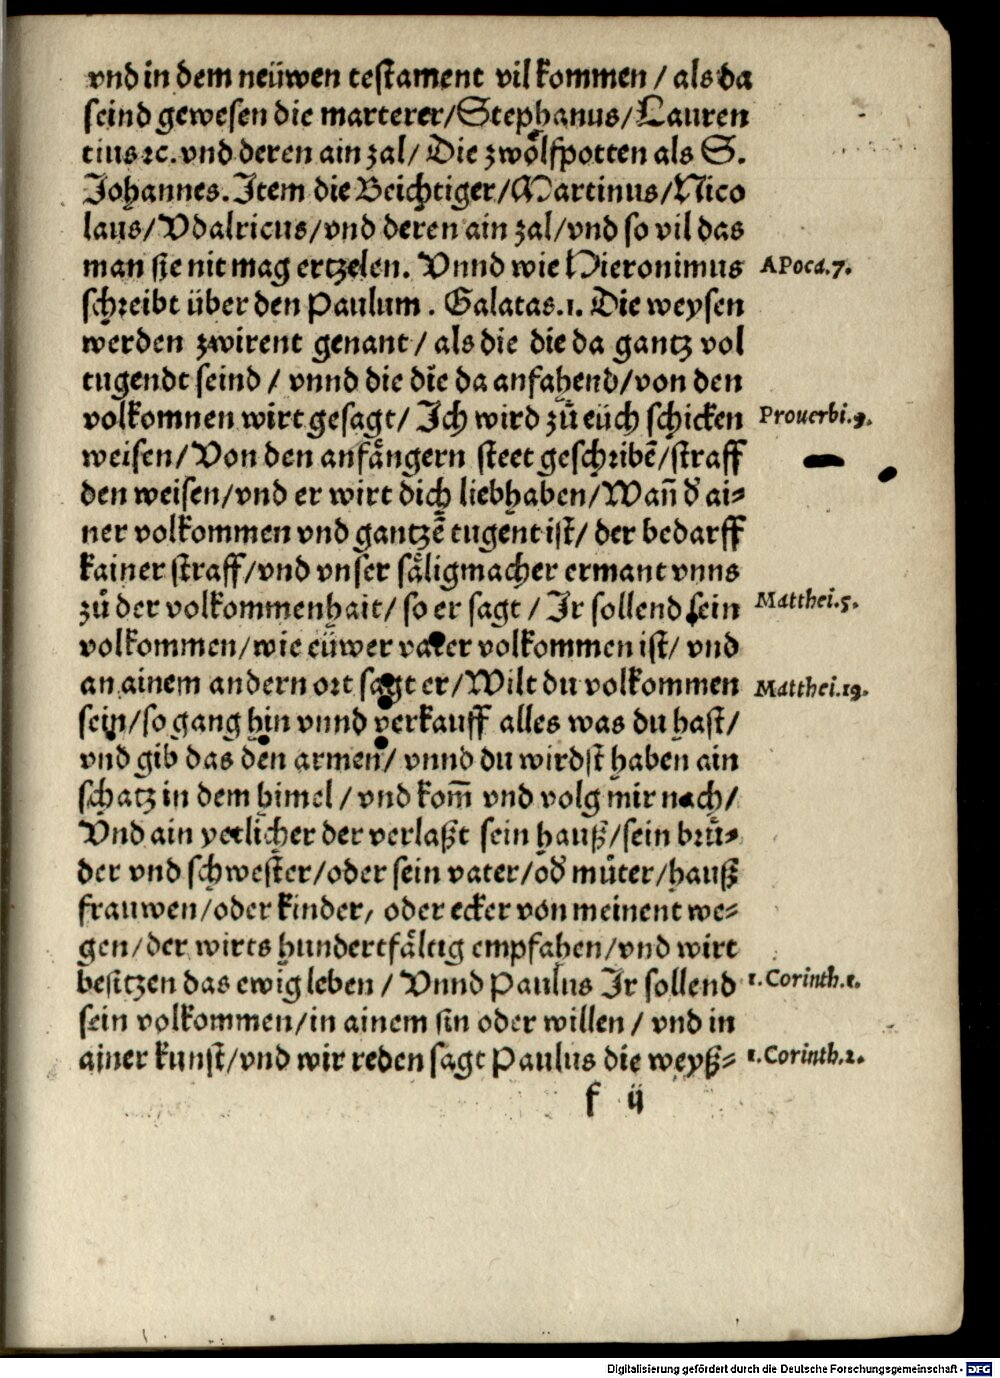 vnd in dem neüwen testament vil kommen / als da
seind gewesen die marterer/Stephanus/Lauren
tius ꝛc. vnd deren ain zal/ Die zwoͤlfpotten als S.
Johannes. Item die Beichtiger/Martinus/Nico
laus/Vdalricus/vnd deren ain zal/vnd so vil das
man sie nit mag ertzelen. Vnnd wie Hieronimus APoca.7.
schreibt über den Paulum. Galatas.1. Die weysen
werden zwirent genant/ als die die da gantz vol
tugendt seind / vnnd die die da anfahend/von den
volkomnen wirt gesagt/ Ich wird zuͦ eüch schicken Prouerbi.9.
weisen/Von den anfaͤngern steet geschribē/straff
den weisen/vnd er wirt dich liebhaben/Wañ d̕ ai⸗
ner volkommen vnd gantzē tugent ist/ der bedarff
kainer straff/vnd vnser saͤligmacher ermant vnns
zuͦ der volkommenhait/ so er sagt / Ir sollend sein Matthei.5.
volkommen/wie eüwer vater volkommen ist/ vnd
an ainem andern ort sagt er/Wilt du volkommen Matthei.19.
sein/so gang hin vnnd verkauff alles was du hast/
vnd gib das den armen/ vnnd du wirdst haben ain
schatz in dem himel / vnd kom̄ vnd volg mir nach/
Vnd ain yetlicher der verlaßt sein hauß/sein bruͤ⸗
der vnd schwester/oder sein vater/od̕ muͦter/hauß
frauwen/oder kinder, oder ecker von meinent we⸗
gen/der wirts hundertfaͤltig empfahen/vnd wirt
besitzen das ewig leben / Vnnd Paulus Ir sollend 1.Corinth.1.
sein volkommen/in ainem sin oder willen / vnd in
ainer kunst/vnd wir reden sagt Paulus die weyß⸗ 1.Corinth.2.
f ij
Digitalisierung gefördert durch die Deutsche Forschungsgemeinschaft - DFG